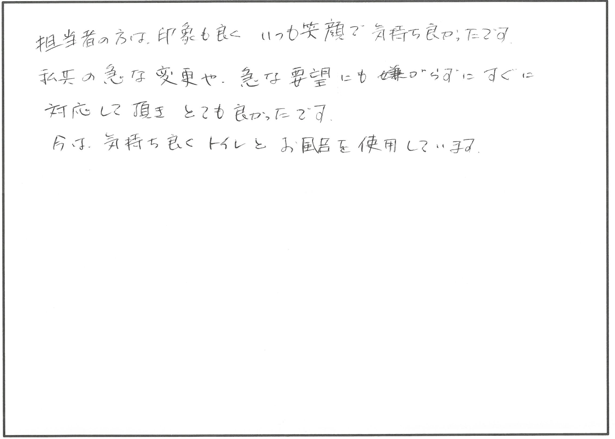 担当者の方は、印象も良く いつも笑顔で 気持ち良かったです。
私共の急な変更や、急な要望にも嫌がらずにすぐに
対応して頂き とても良かったです。
今は、気持ち良くトイレとお風呂を使用しています。